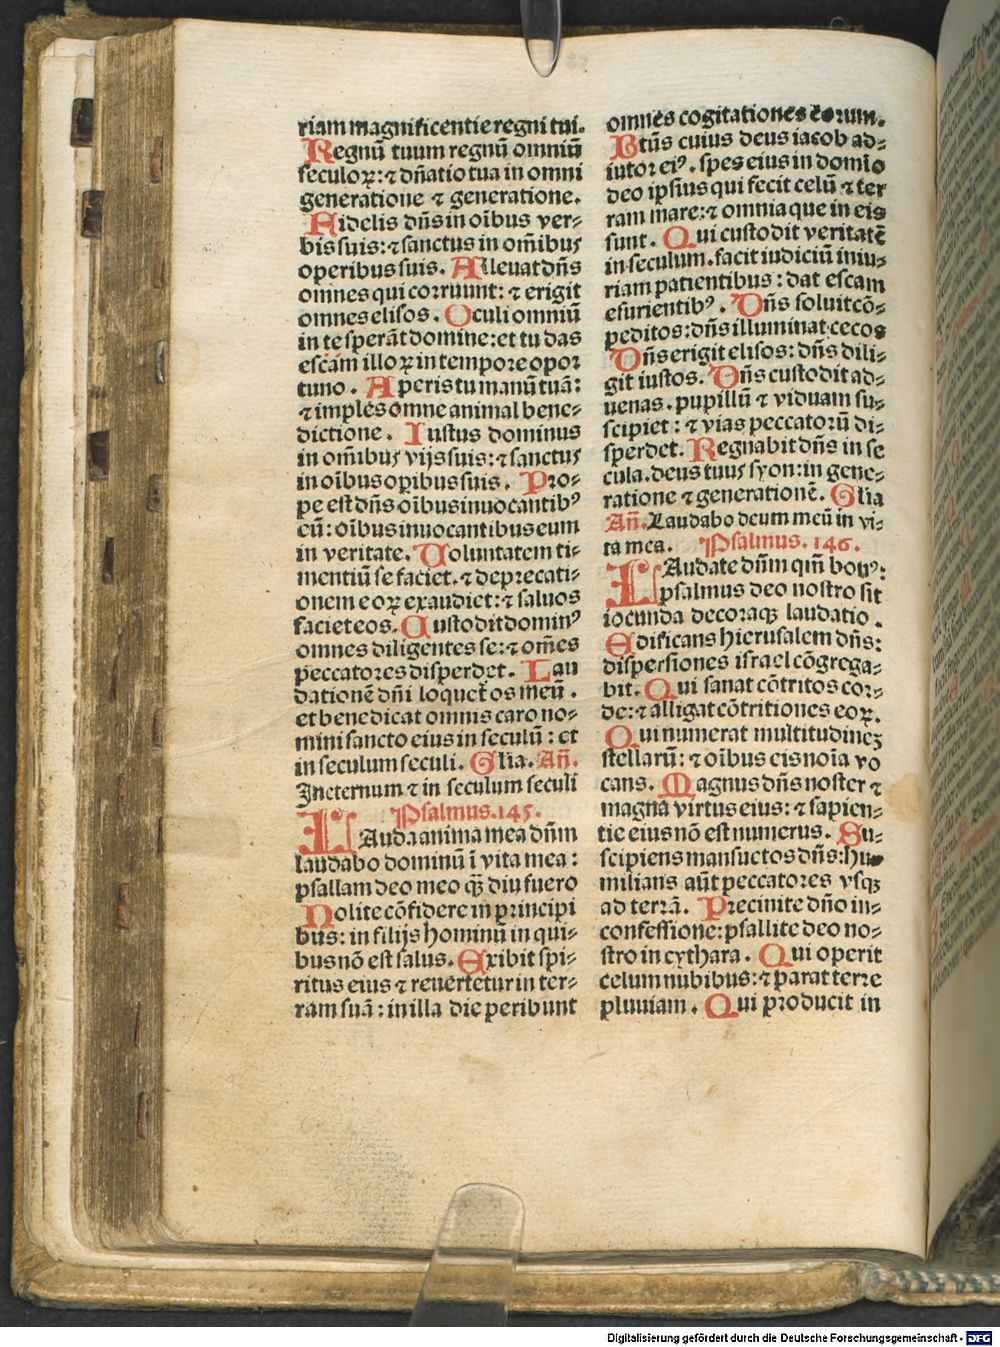 riam magnificentie regni tui.
Regnū tuum regnū omniū
seculoꝝ: ⁊ dn̄atio tua in omni
generatione ⁊ generatione.
Fidelis dn̄s in oībus ver⸗
bis suis: ⁊ sanctus in om̄ibus
operibus suis. Alleuat dn̄s
omnes qui corruunt: ⁊ erigit
omnes elisos. Oculi omniū
in te sperāt domine: et tu das
escam illoꝝ in tempore opor
tuno. Aperis tu manū tuā:
⁊ imples omne animal bene⸗
dictione. Iustus dominus
in om̄ibus vijs suis: ⁊ sanctus
in oībus oꝑibus suis. Pro⸗
pe est dn̄s oībus inuocantibꝰ
eū: oībus inuocantibus eum
in veritate. Voluntatem ti⸗
mentiū se faciet. ⁊ deprecati⸗
onem eoꝝ exaudiet: ⁊ saluos
faciet eos. Custodit dominꝰ
omnes diligentes se: ⁊ om̄es
peccatores disperdet. Lau
dationē dn̄i loquet̄ os meū.
et benedicat omnis caro no⸗
mini sancto eius in seculū: et
in seculum seculi. Gl̄ia. Añ.
In eternum ⁊ in seculum seculi
Psalmus. 145.
LAuda anima mea dn̄m
laudabo dominū ī vita mea:
psallam deo meo qȝ̄ diu fuero
Nolite cōfidere in principi
bus: in filijs hominū in qui⸗
bus nō est salus. Exibit spi⸗
ritus eius ⁊ reuertetur in ter⸗
ram suā: in illa die peribunt
omnes cogitationes eorum.
Btūs cuius deus iacob ad⸗
iutor eiꝰ. spes eius in domīo
deo ipsius qui fecit celū ⁊ ter
ram mare: ⁊ omnia que in eis
sunt. Qui custodit veritatē
in seculum. facit iudiciū iniu⸗
riam patientibus: dat escam
esurientibꝰ. Dn̄s soluit cō⸗
peditos: dn̄s illuminat cecos
Dn̄s erigit elisos: dn̄s dili⸗
git iustos. Dn̄s custodit ad⸗
uenas. pupillū ⁊ viduam su⸗
scipiet: ⁊ vias peccatorū di⸗
sperdet. Regnabit dn̄s in se
cula. deus tuus syon: in gene⸗
ratione ⁊ generationē. Gl̄ia
Añ. Laudabo deum meū in vi⸗
ta mea. Psalmus. 146.
LAudate dn̄m qm̄ bonꝰ:
psalmus deo nostro sit
iocunda decoraqȝ laudatio.
Edificans hierusalem dn̄s:
dispersiones israel cōgrega⸗
bit. Qui sanat cōtritos cor⸗
de: ⁊ alligat cōtritiones eoꝝ.
Qui numerat multitudineȝ
stellarū: ⁊ oībus eis noīa vo
cans. Magnus dn̄s noster ⁊
magna virtus eius: ⁊ sapien⸗
tie eius nō est numerus. Su⸗
scipiens mansuetos dn̄s: hu⸗
milians aūt peccatores vsqȝ
ad terrā. Precinite dn̄o in⸗
confessione: psallite deo no⸗
stro in cythara. Qui operit
celum nubibus: ⁊ parat terre
pluuiam. Qui producit in
Digitalisierung gefördert durch die Deutsche Forschungsgemeinschaft - DFG